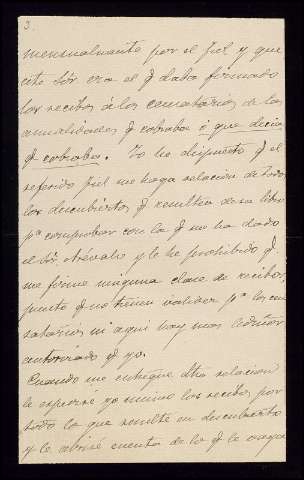 3.
mensualmente por el fiel y que
este Sór era el q daba firmado
los recibos á los censatarios de las
anualidades q cobraba ó que decia
q cobraba. Yo he dispuesto q el
referido fiel me haga relación de todos
los descubiertos q resultan de su libro
pª comprobar con la q me ha dado
el Sór Arévalo y le he prohibido q
me firme ninguna clase de recibos,
puesto q no tienen validez pª los cen
satarios ni aqui hay mas Señor
autorizado q yo.
Cuando me entregue dha relacion
le espediré yo mismo los recibos por
todo lo que resulte en descubierto
y le abriré cuenta de lo q le vaya